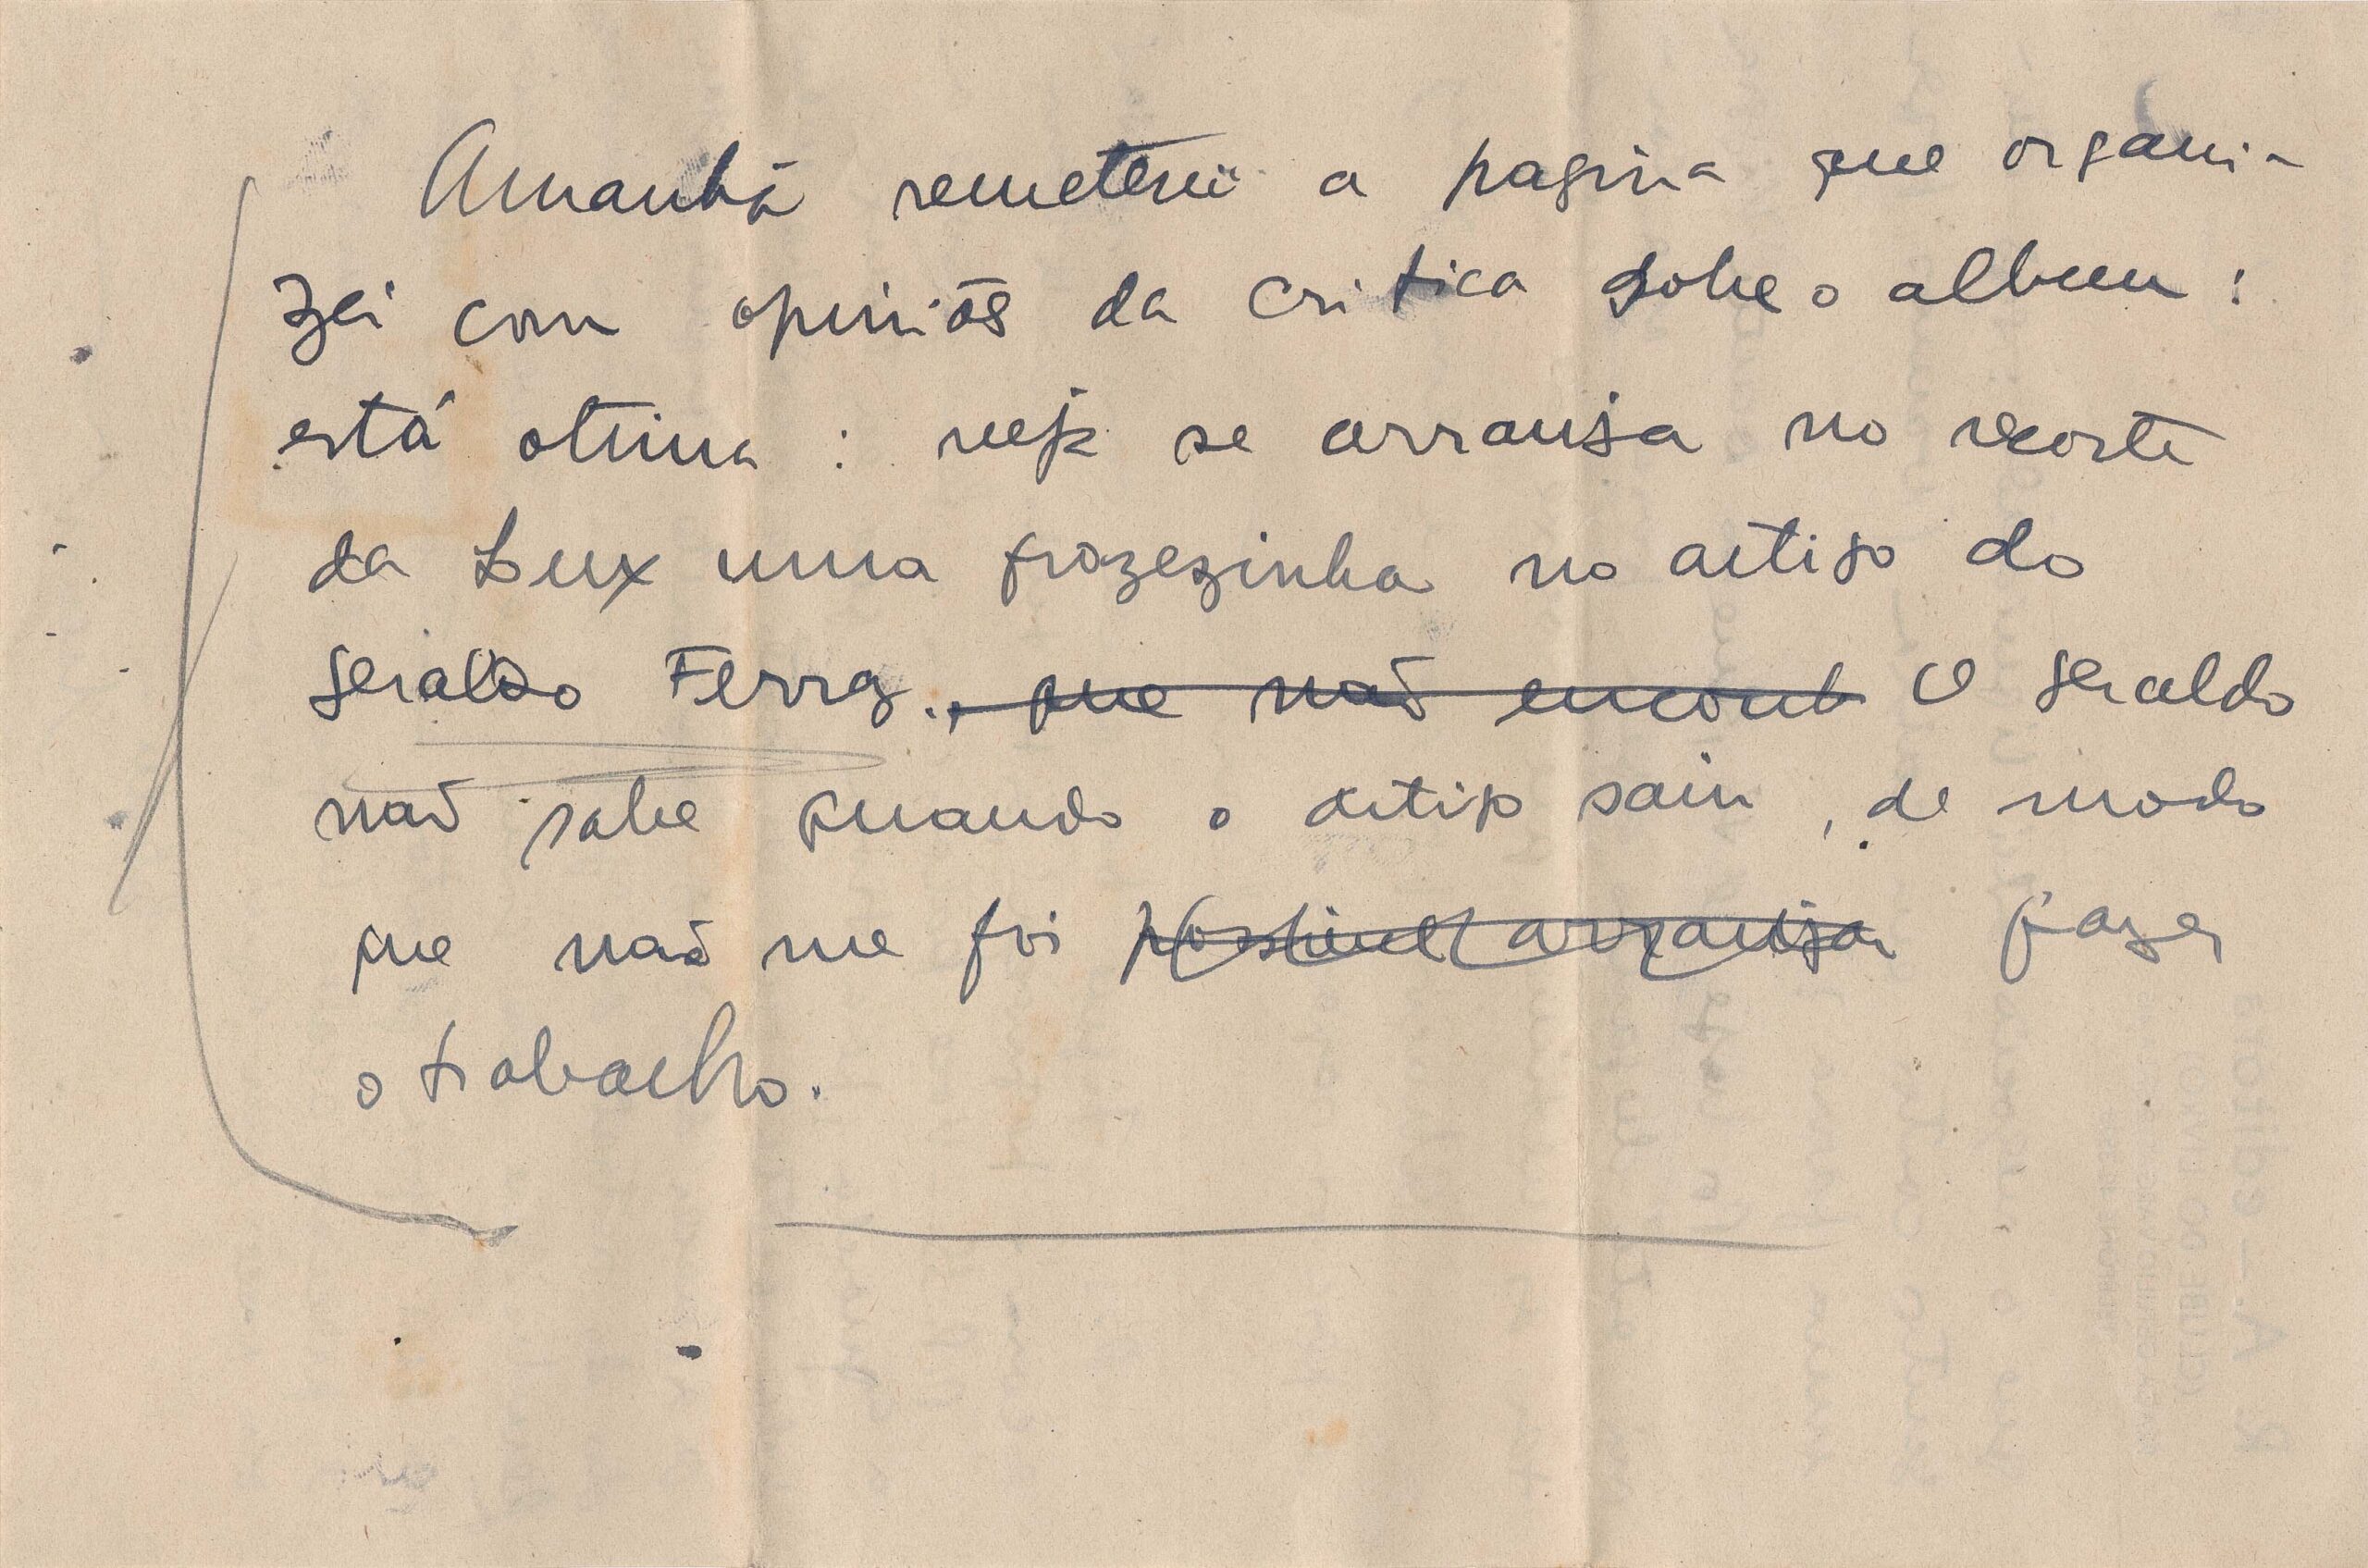 Amanhã remeterei a pagina que organi-
zei com opiniões da critica sobre o album:
está otima: veja se arranja no recorte
da Lux uma frazezinha no artigo do
Geraldo Ferraz., que não encont O Geraldo
não sabe quando o artigo saiu, de modo
que não me foi possivel arranjar fazer
o trabalho.